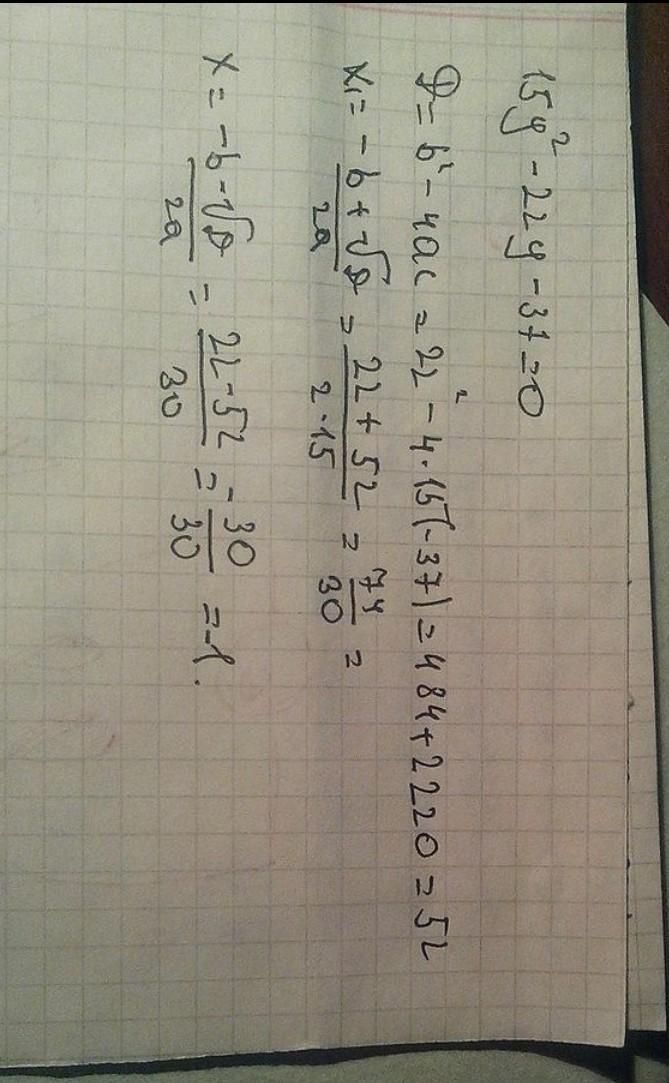 15y² - 22y - 37 = 0
D = b² - 4ac = 22² - 4·15(-37) = 484 + 2220 = 52
x₁ = -b + √D / 2a = 22 + 52 / 2·15 = 74 / 30 =
x = -b - √D / 2a = 22 - 52 / 30 = -30 / 30 = -1.